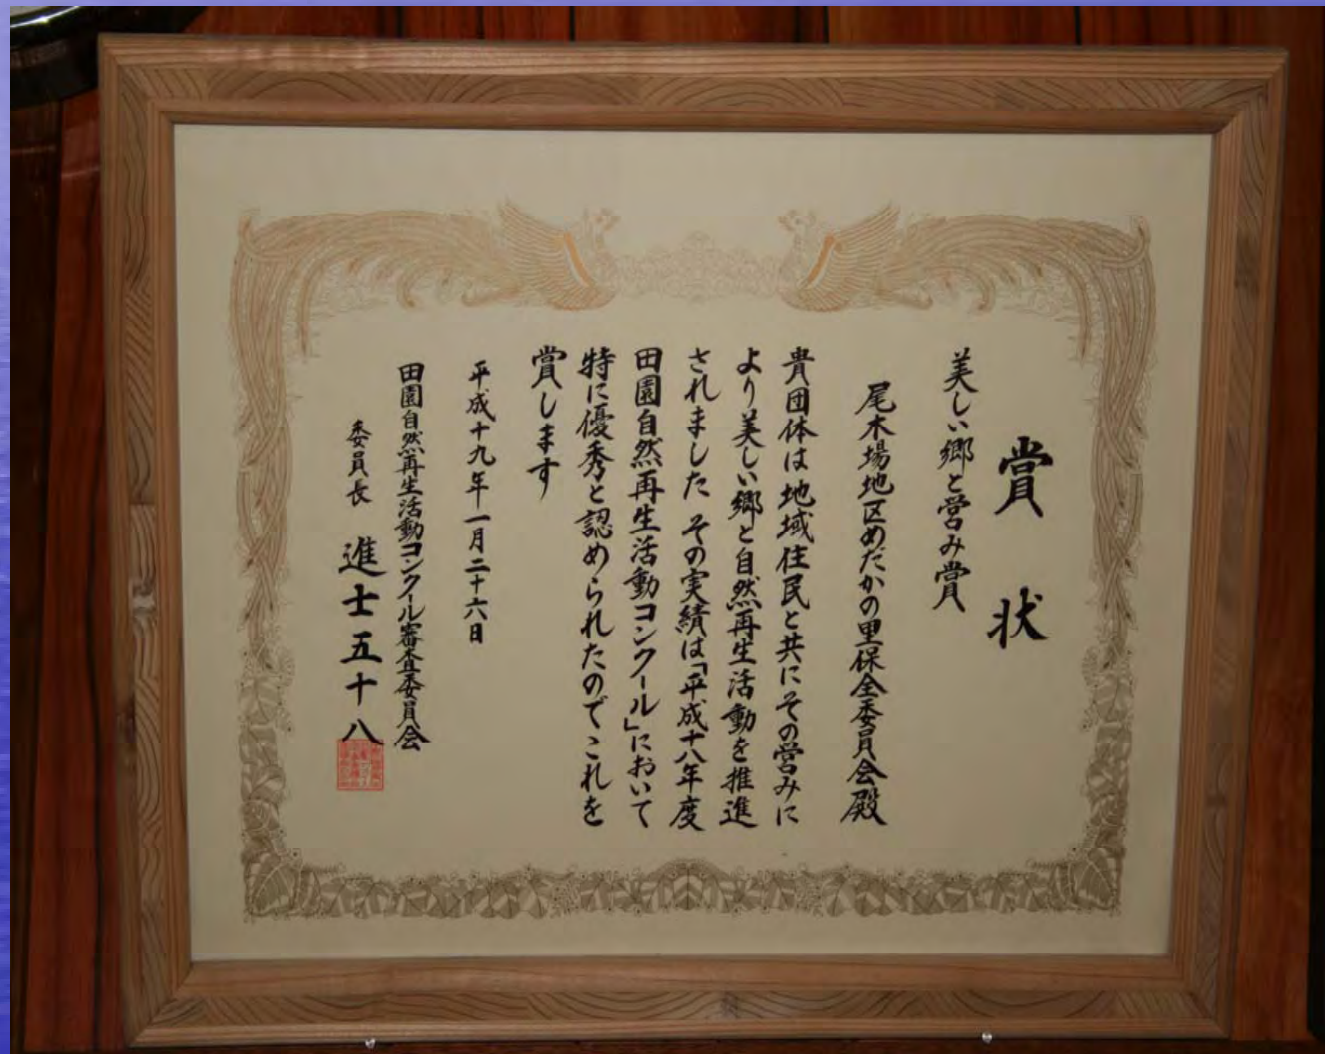 賞状
美しい郷と営み賞
尾木場地区めだかの里保全委員会殿
貴団体は地域住民と共にその営みに
より美しい郷と自然再生活動を推進
されました その実績は「平成十八年度
田園自然再生活動コンクール」において
特に優秀と認められたのでこれを
賞します
平成十九年一月二十六日
田園自然再生活動コンクール審査委員会
委員長 進士五十八